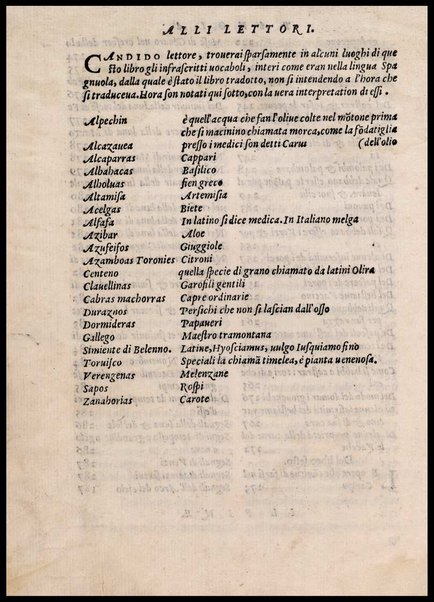 ALLI LETTORI.
CANDIDO lettore, trouerai sparsamente in alcuni luoghi di que
sto libro gli infrascritti uocaboli, interi come eran nella lingua Spa
gnuola, dalla quale è stato il libro tradotto, non si intendendo a l'hora che
si traduceua. Hora son notati qui sotto, con la uera interpretation di essi.
Alpechin è quell'acqua che fan l'oliue colte nel mōtone prima
che si macinino chiamata morca, come la fōdatiglia
Alcazauea presso i medici son detti Carui (dell'olio
Alcaparras Cappari
Albahacas Basilico
Alholuas fien greco
Altamisa Artemisia
Acelgas Biete
Alfalfa In latino si dice medica. In Italiano melga
Azibar Aloe
Azufeifos Giuggiole
Azamboas Toronies Citroni
Centeno quella specie di grano chiamato da latini Olira
Clauellinas Garofili gentili
Cabras machorras Capre ordinarie
Duraznos Persichi che non si lascian dall'osso
Dormideras Papaueri
Gallego Maestro tramontana
Simiente di Belenno. Latine, Hyosciamus, uulgo Iusquiamo fino
Toruisco Speciali la chiamā timelea, è pianta uenenosa.
Verengenas Melenzane
Sapos Rospi
Zanahorias Carote